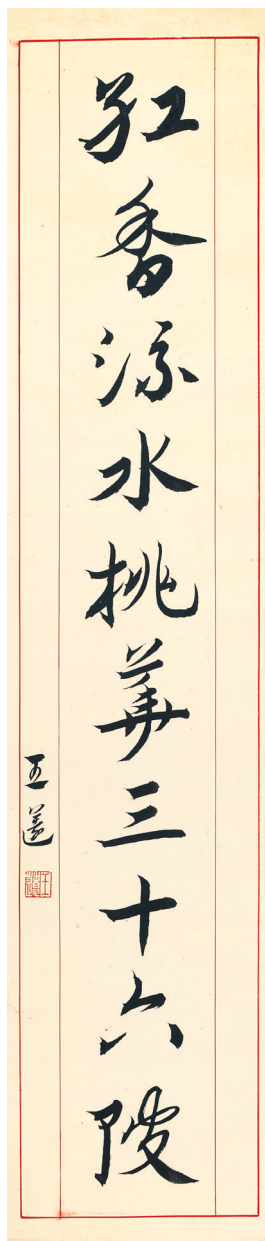 紅香流水桃華三十六陂
王蘧